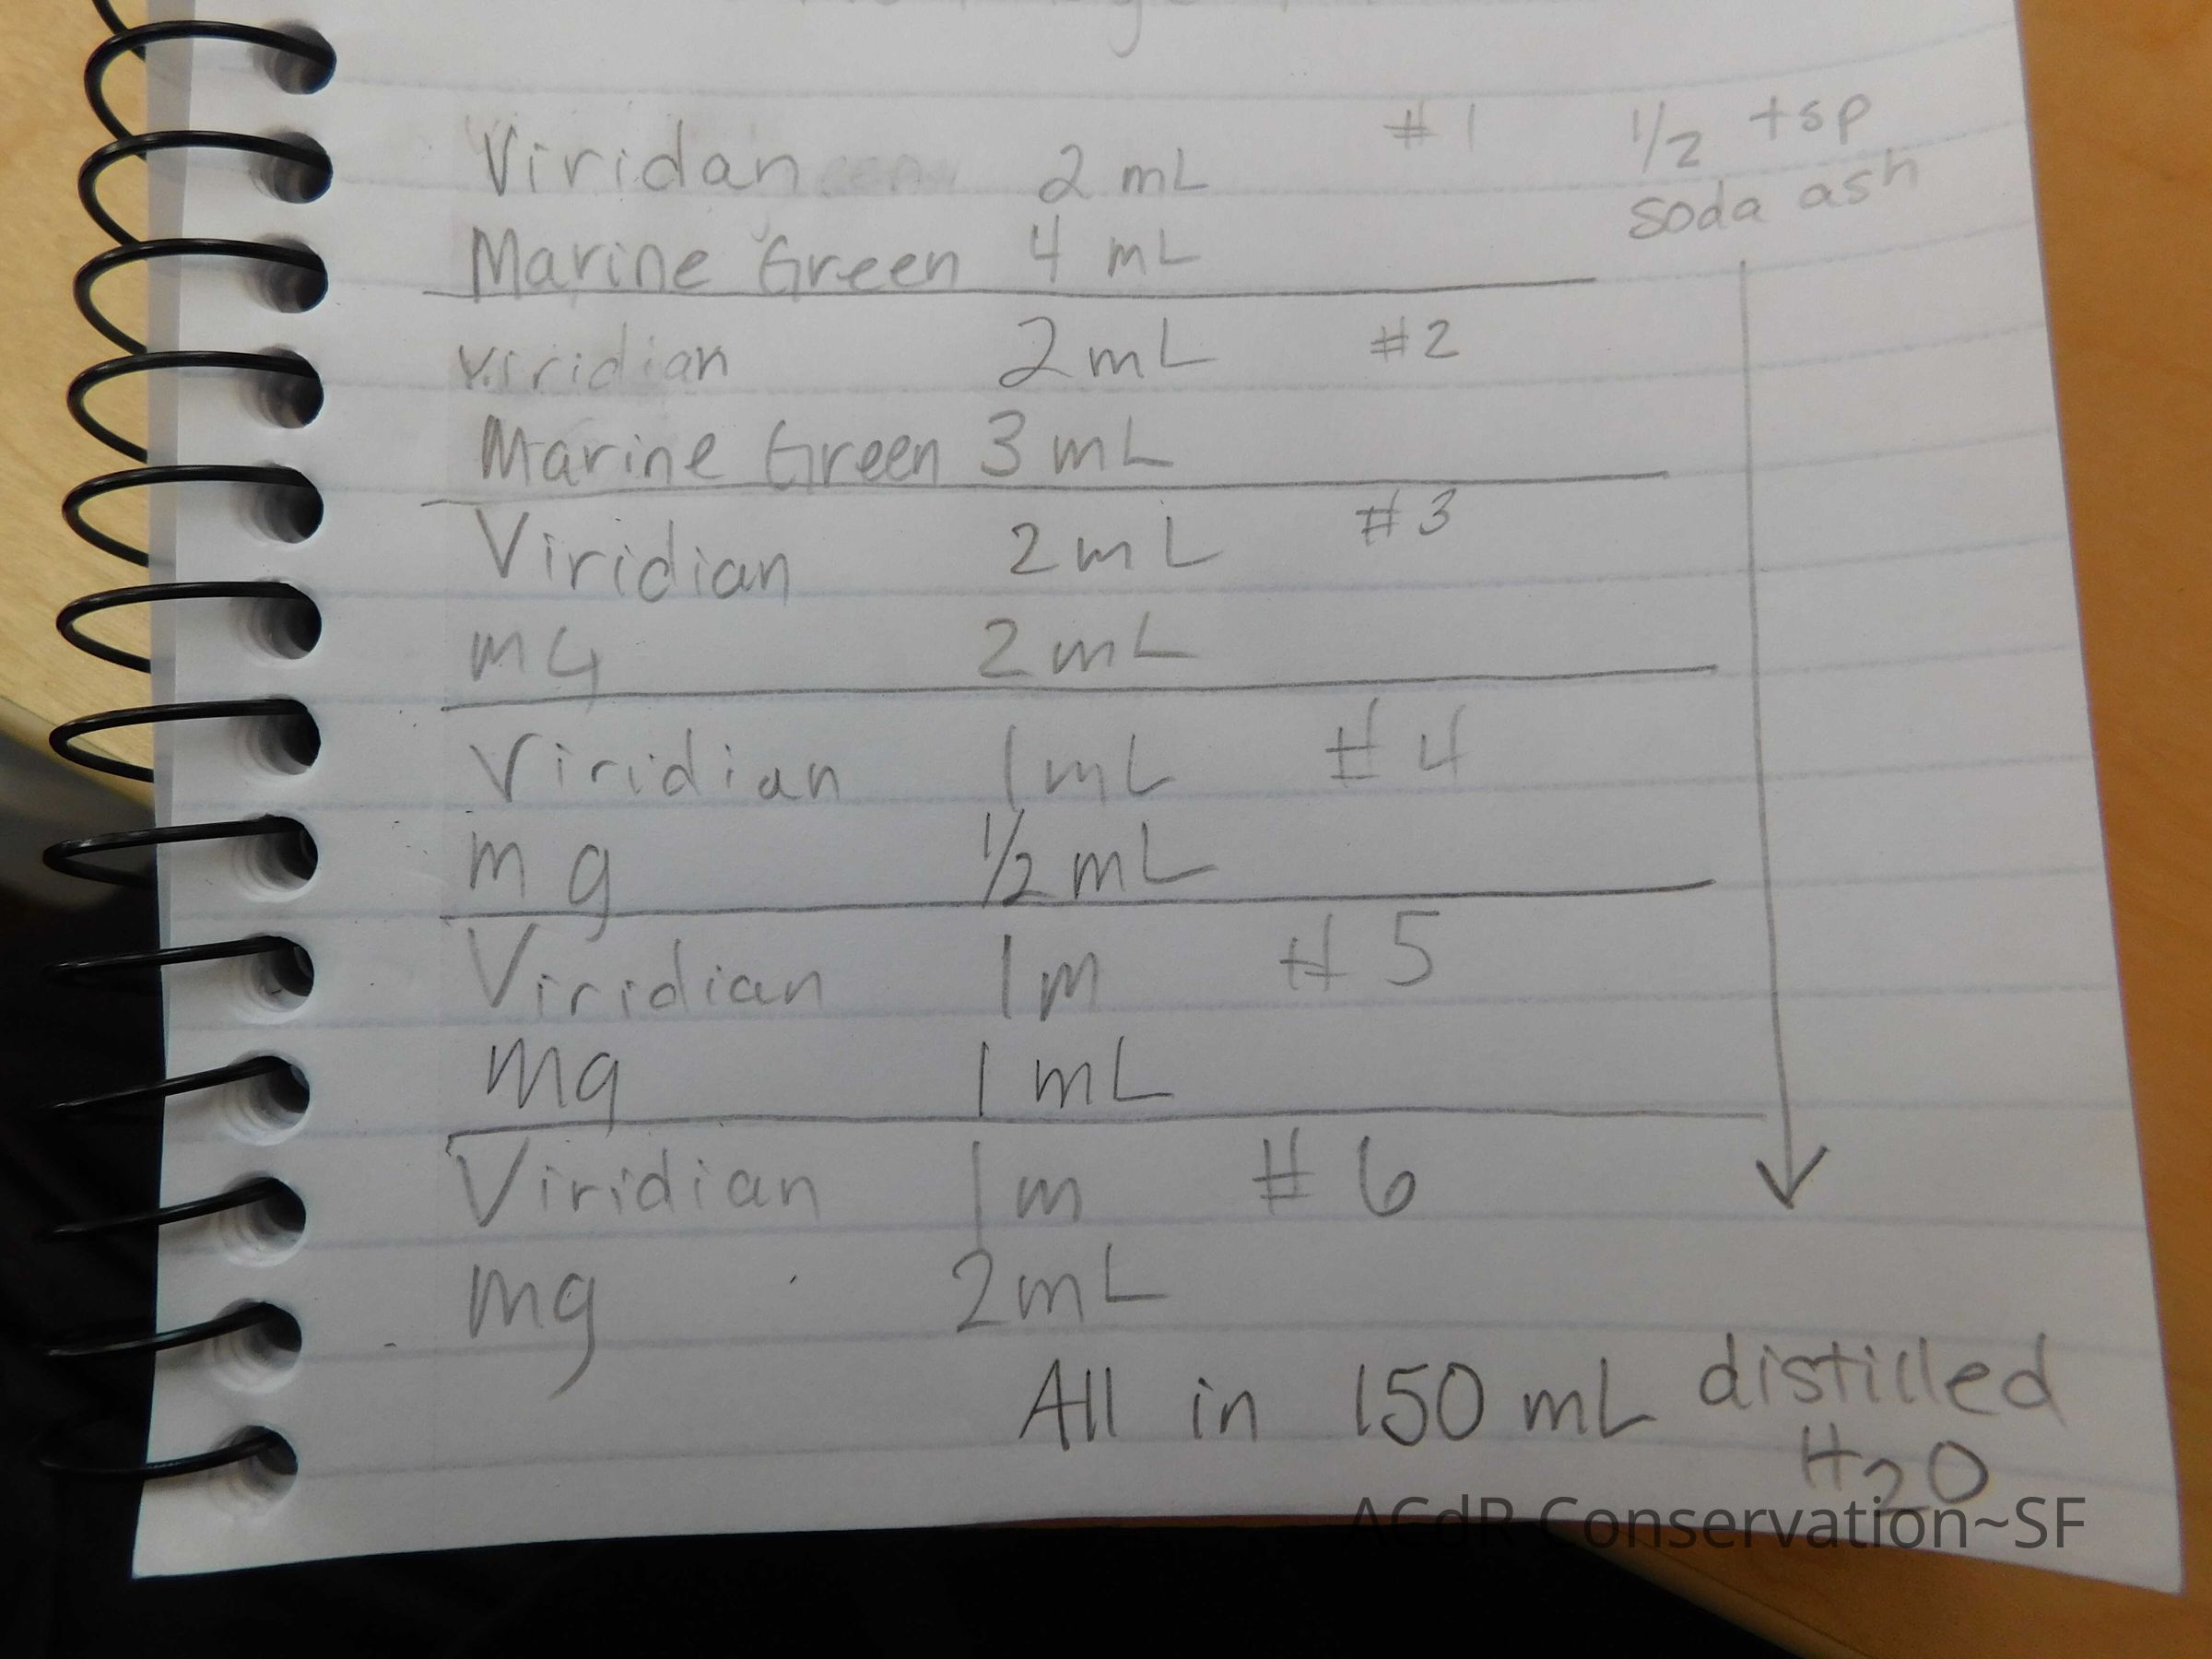 Viridan 2 mL #1 1/2 tsp
soda ash
Marine Green 4 mL
Viridian 2 mL #2
Marine Green 3 mL
Viridian 2 mL #3
MG 2 mL
Viridian 1 mL #4
mg 1/2 mL
Viridian 1 m #5
mg 1 mL
Viridian 1 m #6
mg 2 mL
All in 150 mL distilled
H2O
ACdR Conservation~SF